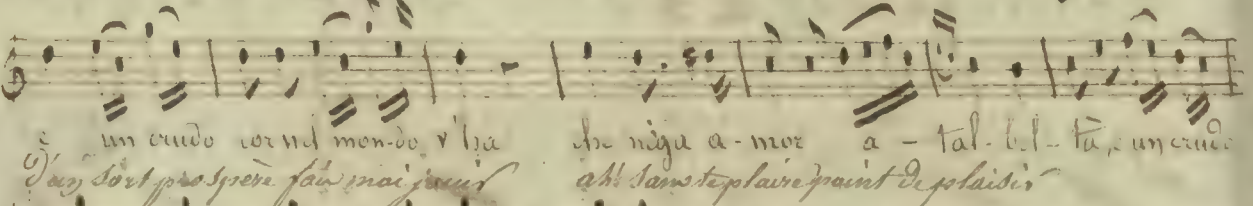 è un crudo cor nel mon-do v'ha che niega a-mor a - tal-bel-tà, e un crudo
D'un sort prospère fais moi jouir ah! sans te plaire point de plaisir